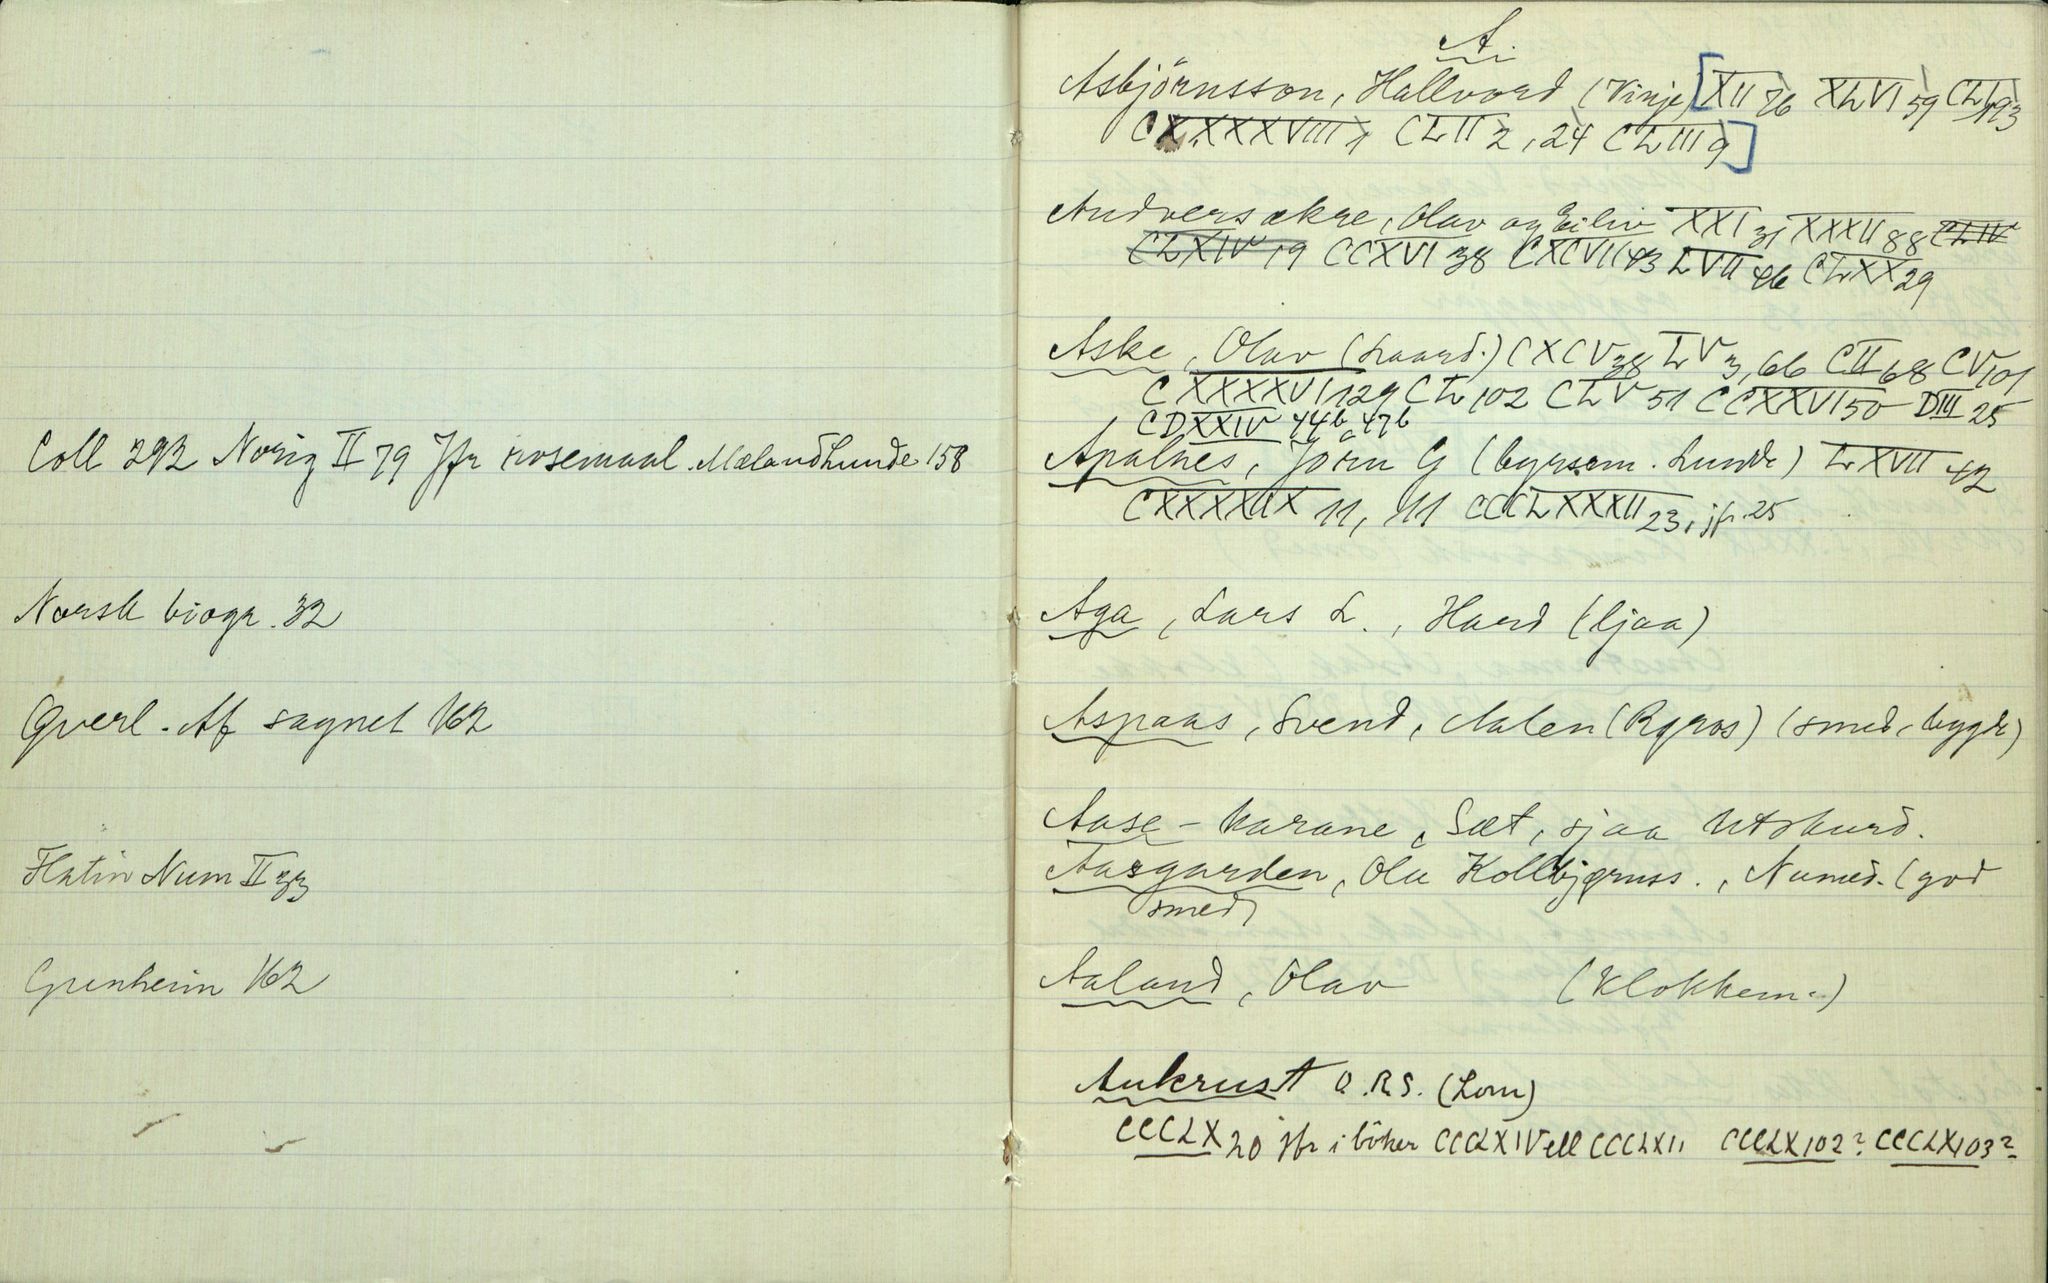 Coll 292 Norig II 79 Jfr rosemaal. Mælandslunde 158
Norsk biogr. 32
Qverl. Af sagnet 162
Flatin Num II 33
Grenheim 162
A.
Asbjörnsson, Hallvord (Vinje) [XII 76 XLVI 59 CLI 93
CXXXXVIII 1 CLII 2, 24 CLIII 9]
Andversakre, Olav og Eiliv XXI 31 XXXII 88 CLIV
CLXIV 19 CCXVI 38 CXCVII 43 LVII 46 CLXX 29
Aske, Olav (Laard.) CXCV 38 LV 3, 66 CII 68 CV 101
CXXXXVI 129 CL 102 CLV 51 CCXXVI 50 DIII 25
CDXXIV 44b, 47b
Apalnes, Jörn G (byrsem. Lunde) LXVII 42
CXXXXIX 11, 111 CCCLXXXII 23, jfr. 25
Aga, Lars L., Hard (ljaa)
Aspaas, Svend, Aalen (Røros) (smed, bygde)
Aase-karane, Sæt, sjaa Utskurd.
Aasgarden, Ola Kolbjørnss., Numed. (god
smed)
Aaland, Olav (Klokkem.)
Aukrust O.R.S. (Lom)
CCCLX 20 jfr i böker CCCLXIV ell CCCLXII CCCLX 102? CCCLX 103?